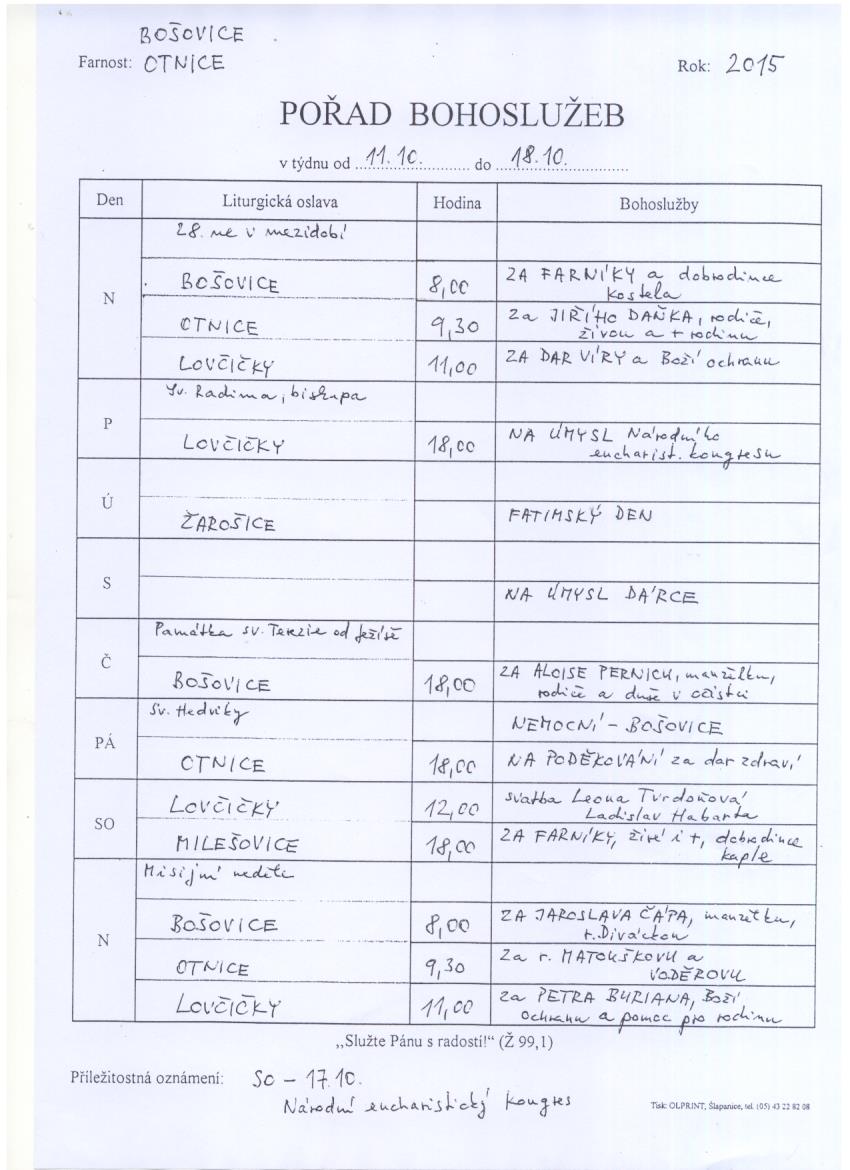 BOŠOVICE
Farnost: OTNICE
Rok: 2015
POŘAD BOHOSLUŽEB
v týdnu od 11.10. do 18.10.
Den Liturgická oslava Hodina Bohoslužby
N
28. ne v mezidobí
BOŠOVICE 8,00 ZA FARNÍKY a dobrodince
kostela
OTNICE 9,30 Za JIŘÍHO DAŇKA, rodiče,
živou a + rodinu
LOVČIČKY 11,00 ZA DAR VÍRY a Boží ochranu
P
Sv. Radima, biskupa
LOVČIČKY 18,00 NA ÚMYSL Národního
eucharist. kongresu
Ú
ŽAROŠICE FATIMSKÝ DEN
S
NA ÚMYSL DÁRCE
Č
Památka sv. Terezie od Ježíše
BOŠOVICE 18,00 ZA ALOISE PERNICU, manželku,
rodiče a duše v očistci
PÁ
Sv. Hedviky
NEMOCNÍ - BOŠOVICE
OTNICE 18,00 NA PODĚKOVÁNÍ za dar zdraví
SO
LOVČIČKY 12,00 svatba Leona Tvrdoňová
Ladislav Habarta
MILEŠOVICE 18,00 ZA FARNÍKY, živé i +, dobrodince
kaple
N
Misijní neděle
BOŠOVICE 8,00 ZA JAROSLAVA ČÁPA, manželku,
r. Diváckou
OTNICE 9,30 Za r. MATOUŠKOVU a
VODĚROVU
LOVČIČKY 11,00 za PETRA BURIANA, Boží
ochranu a pomoc pro rodinu
„Služte Pánu s radostí!“ (Ž 99,1)
Příležitostná oznámení: SO – 17.10.
Národní eucharistický kongres
Tisk: OLPRINT, Šlapanice, tel. (05) 43 22 82 08